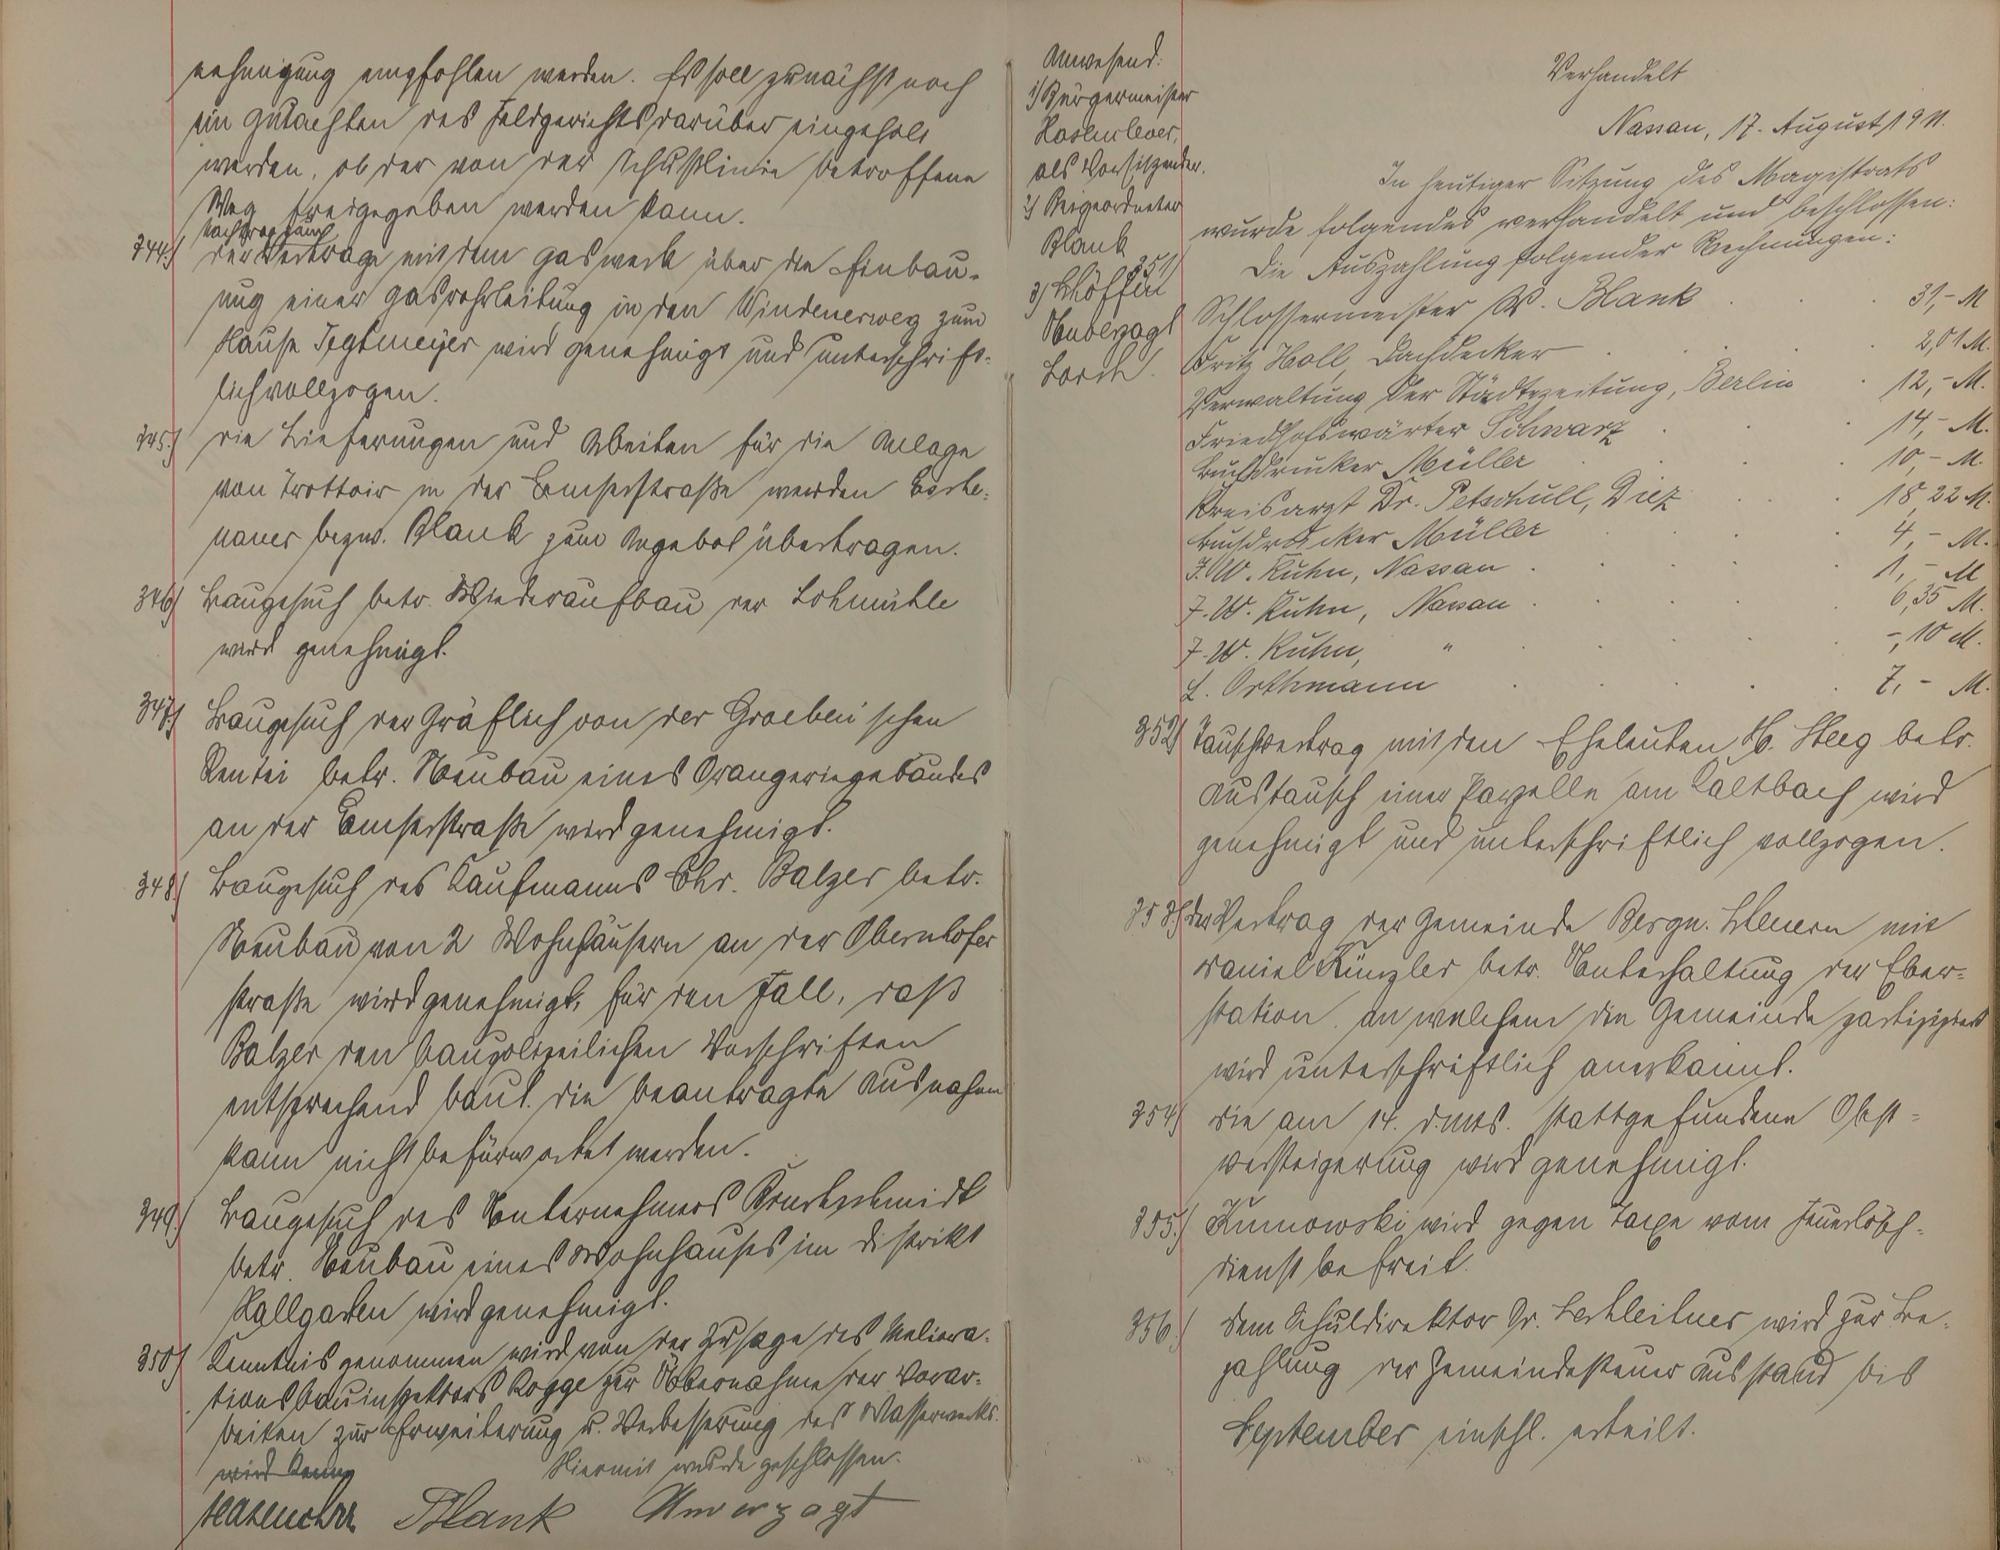 nehmigung empfohlen werden. Es soll zunächst noch
ein Gutachten des Feldgerichts darüber eingeholt
werden, ob der von der Schußlinie betroffene
Weg freigegeben werden kann.
344.) Nachtrag zum
der Vertrage mit dem Gaswerk über die Einbau-
ung einer Gasrohrleitung in den Windenerweg zum
Hause Tegtmeyer wird genehmigt und unterschrift-
lich vollzogen.
345.) Die Lieferungen und Arbeiten für die Anlage
von Trottoir in der Emserstraße werden
bezw. Blank zum Angebot übertragen.
346) Baugesuch betr. Wiederaufbau der Lohmühle
wird genehmigt.
347.) Baugesuch der Gräflich von der Groeben'schen
Rentei betr. Neubau eines Orangeriegebäudes
an der Emserstraße wird genehmigt.
348.) Baugesuch des Kaufmanns Chr. Balzer betr.
Neubau von 2 Wohnhäusern an der Obernhofer
straße wird genehmigt, für den Fall, daß
Balzer den baupolizeilichen Vorschriften
entsprechend baut. Die beantragte Ausnahme
kann nicht befürwortet werden.
349.) Baugesuch des Unternehmers
betr. Neubau eines Wohnhauses im Distrikt
Hallgarten wird genehmigt.
350) Kenntnis genommen wird von der Zusage des Meliora-
tionsbauinspektors Rogge zur Übernahme der Vorar-
beiten zur Erweiterung u. Verbesserung des Wasserwerks.
wird
Hiermit wurde geschlossen.
Hasenclever Blank Unverzagt
Anwesend:
1) Bürgermeister
Hasenclever,
als Vorsitzender.
2) Beigeordneter
Blank
3) Schöffen
Unverzagt
Lorch.
Verhandelt
Nassau, 17. August 1911.
In heutiger Sitzung des Magistrats
wurde folgendes verhandelt und beschlossen:
351) Die Auszahlung folgender Rechnungen:
Schlossermeister W. Blank 31,- M
Fritz Holl, Dachdecker 2,01 M.
Verwaltung der Städtezeitung, Berlin 12,- M.
Friedhofswärter Schwarz 14,- M.
Buchdrucker Müller 10,- M.
Kreisarzt Dr. Petschull, Diez 18,22 M.
Buchdrucker Müller 4,- M.
F. W. Kuhn, Nassau 1,- M
F. W. Kuhn, Nassau 6,35 M.
F. W. Kuhn, " -,10 M.
L. Orthmann 7,- M.
352) Tauschvertrag mit den Eheleuten H. Steeg betr.
Austausch einer Parzelle am Kaltbach wird
genehmigt und unterschriftlich vollzogen.
353) Der Vertrag der Gemeinde Bergn. Scheuern mit
Daniel Künzler betr. Unterhaltung der Eber-
station, an welchem die Gemeinde partizipiert
wird unterschriftlich anerkannt.
354) Die am 14. d. Mts. stattgefundene Obst-
versteigerung wird genehmigt.
355.) Kumowski wird gegen Taxe vom Feuerlösch-
dienst befreit.
356.) Dem Schuldirektor Dr. wird zur Be-
zahlung der Gemeindesteuer Ausstand bis
September einschl. erteilt.